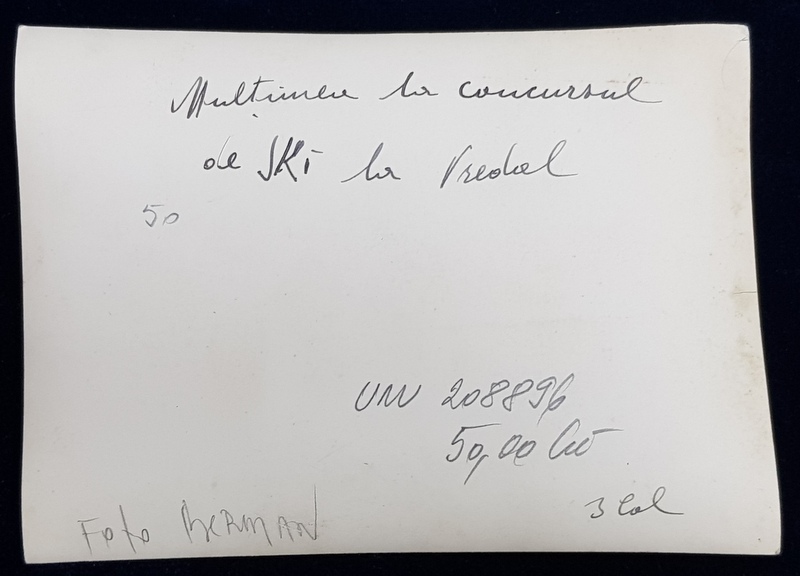 Mulțimea la concursul
de SKi la Predeal
50
UNV 208896
50,00 Lei
3 Col
Foto BERMAN